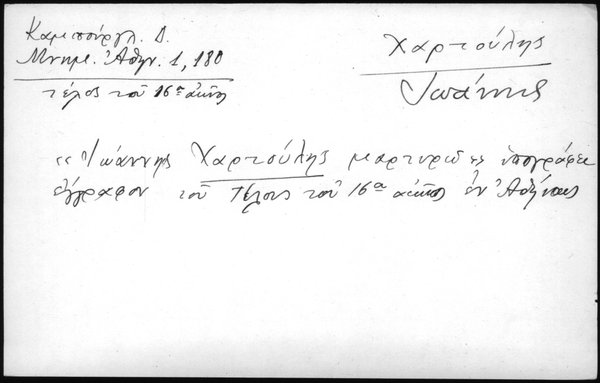 Καμπούργλ. Δ.
Μνημ. Ἀθην. 1, 180
τέλος τοῦ 16ου αἰῶνος
Χαρτούλης
Ἰωάννης
«Ἰωάννης Χαρτούλης μαρτυρῶ» ὑπογράφει
ἔγγραφον τοῦ τέλους τοῦ 16ου αἰῶνος ἐν Ἀθήναις